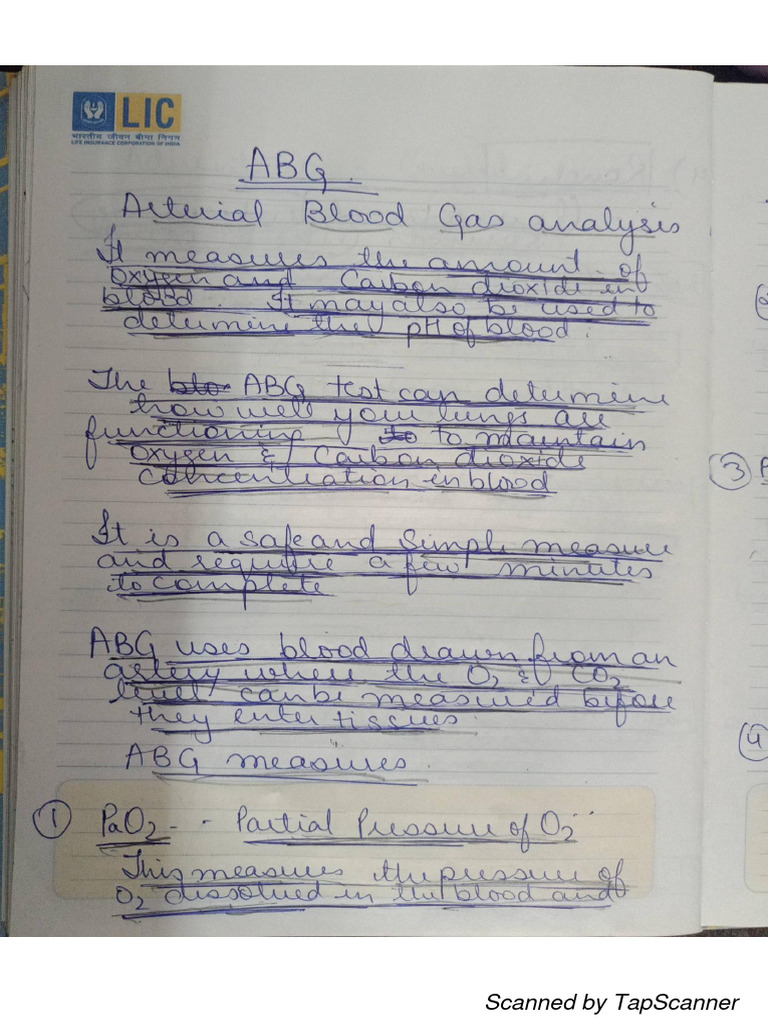 LIC
भारतीय जीवन बीमा निगम
LIFE INSURANCE CORPORATION OF INDIA
ABG
Arterial Blood Gas analysis
It measures the amount of
oxygen and Carbon dioxide in
blood. It may also be used to
determine the pH of blood.
The blo ABG test can determine
how well your lungs are
functioning to to maintain
oxygen & Carbon dioxide
concentration in blood
It is a safe and simple measure
and require a few minutes
to complete
ABG uses blood drawn from an
artery where the O2 & CO2
level can be measured before
they enter tissues.
ABG measures.
1 PaO2 - - Partial Pressure of O2
This measures the pressure of
O2 dissolved in the blood and
3
4
Scanned by TapScanner